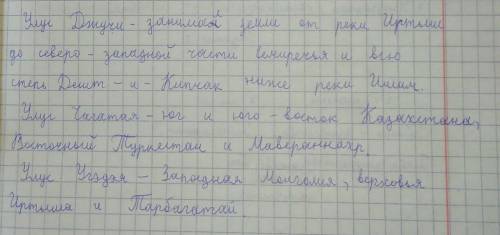 Улус Джучи - занимал земли от реки Иртыш
до северо - западной части семиречья и всю
степь Дешт - и - Кипчак ниже реки Итил.
Улус Чагатая - юг и юго - восток Казахстана,
Восточный Туркестан и Мавераннахр.
Улус Угэдэя - Западная Монголия, верховья
Иртыша и Тарбагатай.